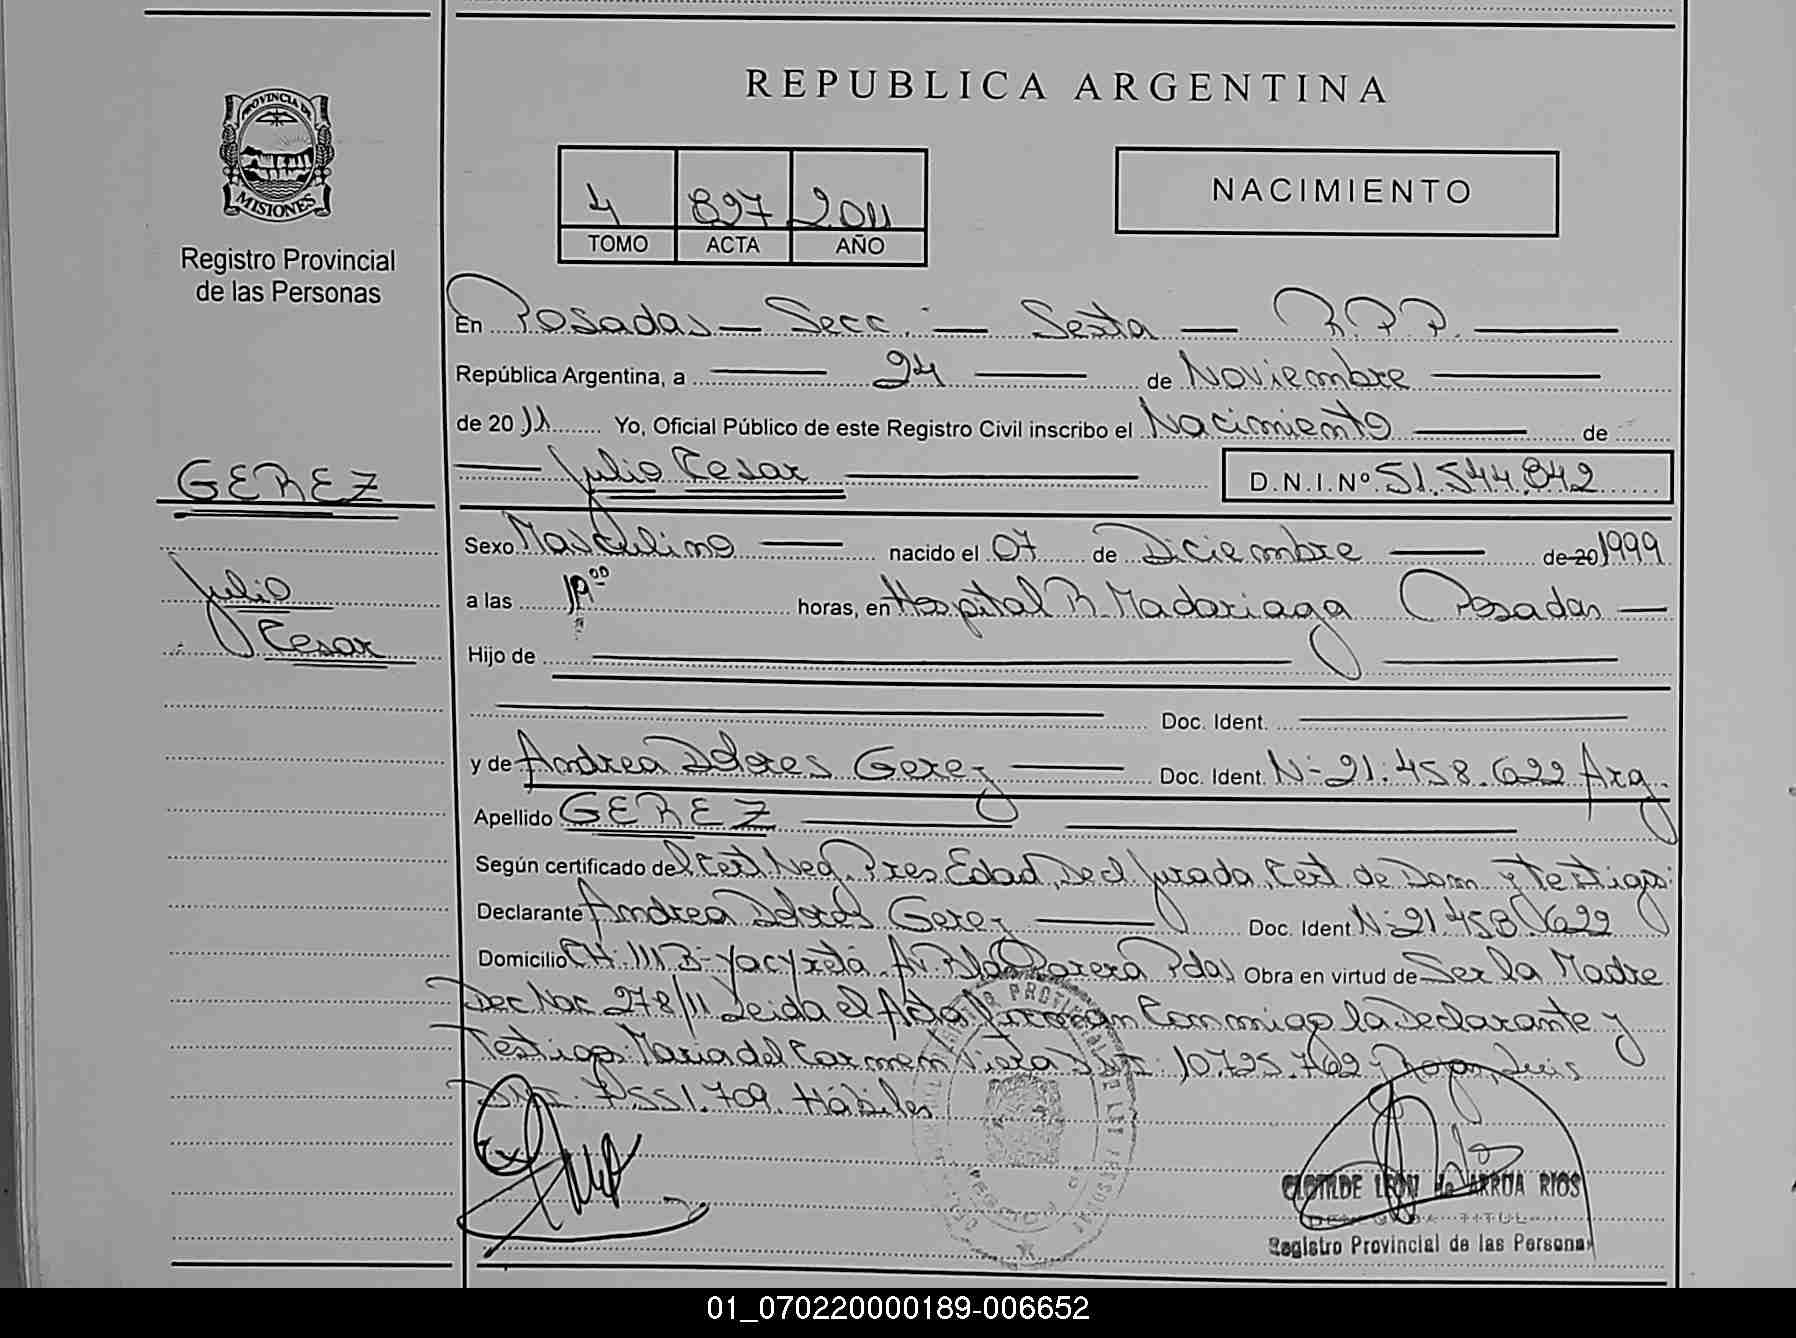 REPUBLICA ARGENTINA
PROVINCIA DE
MISIONES
Registro Provincial
de las Personas
4 897 2011
TOMO ACTA AÑO
NACIMIENTO
En Posadas — Secc. — Sexta — R.P.P. —
República Argentina, a — 24 — de Noviembre —
de 20 11 Yo, Oficial Público de este Registro Civil inscribo el Nacimiento — de
— Julio Cesar — D.N.I.Nº 51.544.842
GEREZ
Julio
Cesar
Sexo Masculino — nacido el 07 de Diciembre — de 20 1999
a las 19⁰⁰ horas, en Hospital R. Madariaga Posadas —
Hijo de —
— Doc. Ident. —
y de Andrea Dolores Gerez — Doc. Ident. Nº 21.458.622 Arg.
Apellido GEREZ —
Según certificado del Cert. Neg. Pres Edad, Decl Jurada, Cert. de Dom. y Testigos
Declarante Andrea Dolores Gerez — Doc. Ident Nº 21.458.622
Domicilio CH. 111 B- Yacyreta Pdas Obra en virtud de Ser la Madre
Dec Nac 278/11 Leida el Acta Firman Conmigo la Declarante y
Testigos Maria del Carmen Viera DNI: 10.725.762 y Rojas, Luis
DNI. 7.551.709. Hábiles
CLOTILDE LEON de ARRUA RIOS
Registro Provincial de las Personas
01_070220000189-006652